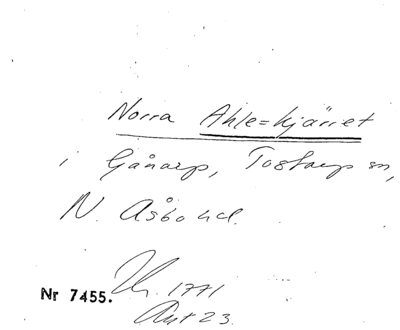 Norra Ahle=kjärret
i Gånarp, Tostarp sn,
N. Åsbo hd.
1771
Nr 7455.
Akt 23.